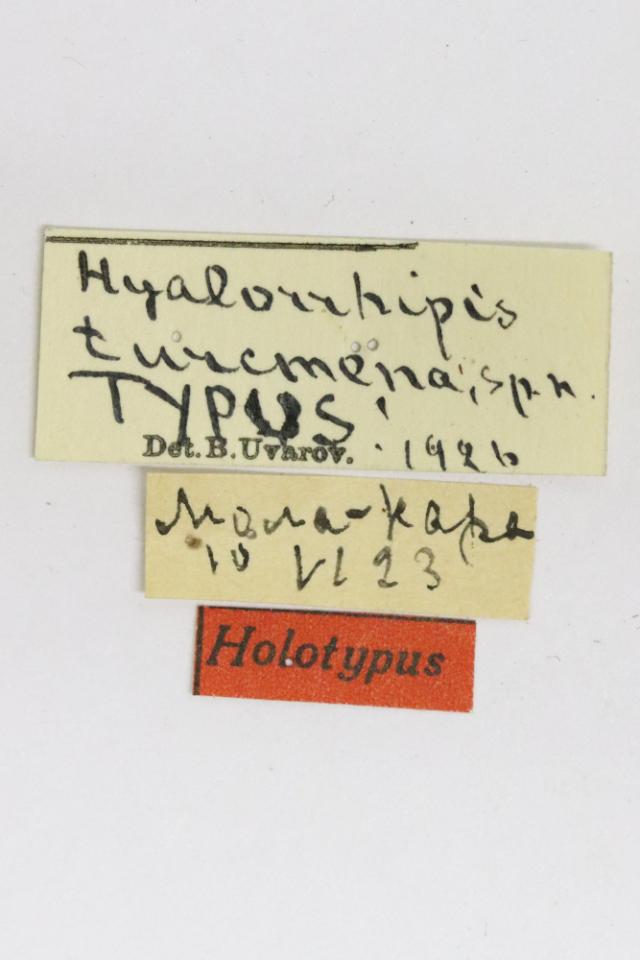 Hyalorrhipis
turcmena, sp. n.
TYPUS!
Det. B. Uvarov. 1926
Мола-Кара
10 VI 23
Holotypus